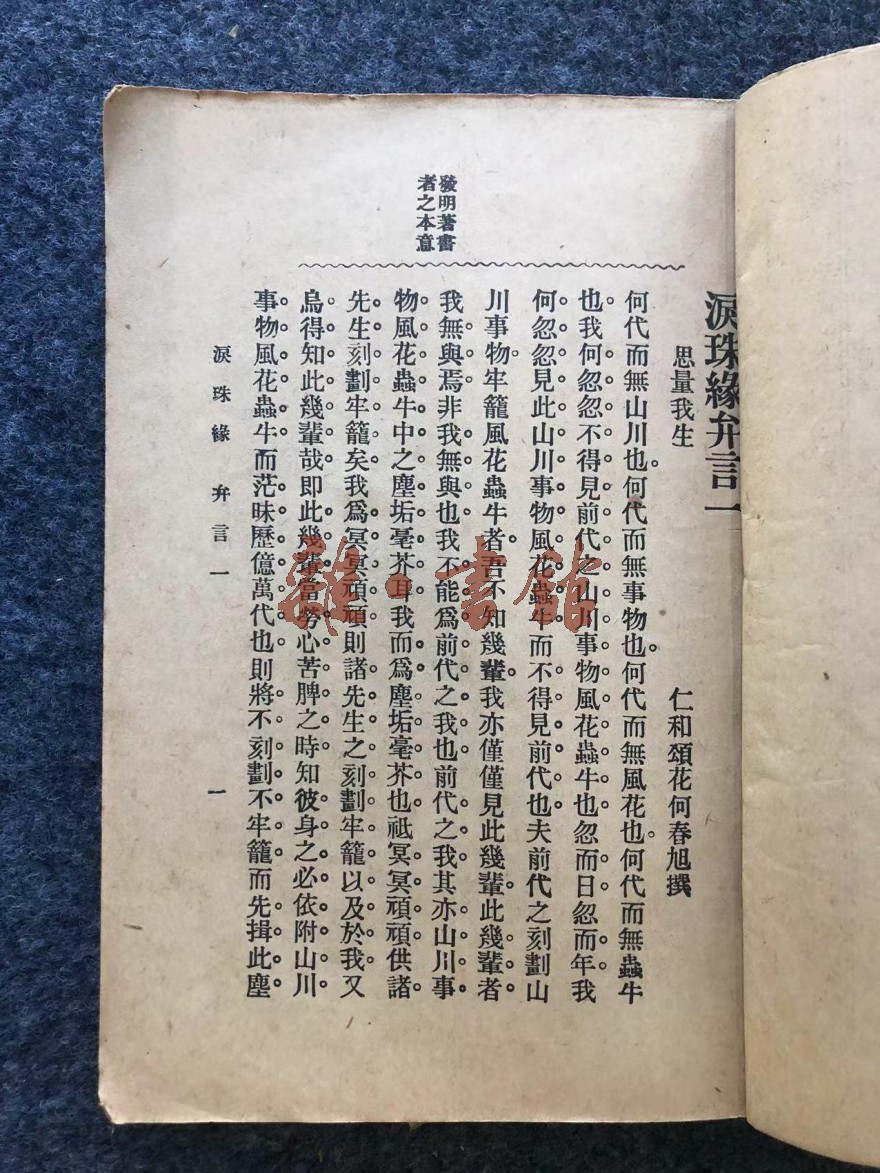 淚珠緣弁言一
思量我生
仁和頌花何春旭撰
發明著書
者之本意
何代而無山川也。何代而無事物也。何代而無風花也。何代而無蟲牛
也我何忽忽不得見前代之山川事物風花蟲牛也忽而日忽而年我
何忽忽見此山川事物風花蟲牛而不得見前代也夫前代之刻劃山
川事物。牢籠風花蟲牛者。吾不知幾輩。我亦僅僅見此幾輩。此幾輩者
我無與焉非我無與也我不能爲前代之我也前代之我其亦山川事
物風花蟲牛中之塵垢毫芥耳我而爲塵垢毫芥也祗冥冥頑頑供諸
先生刻劃牢籠矣我爲冥冥頑頑則諸先生之刻劃牢籠以及於我又
烏得知此幾輩哉即此幾輩當勞心苦脾之時知彼身之必依附山川
事物風花蟲牛而茫昧歷億萬代也則將不刻劃不牢籠而先揖此塵
淚珠緣 弁言一
一
雜·書館